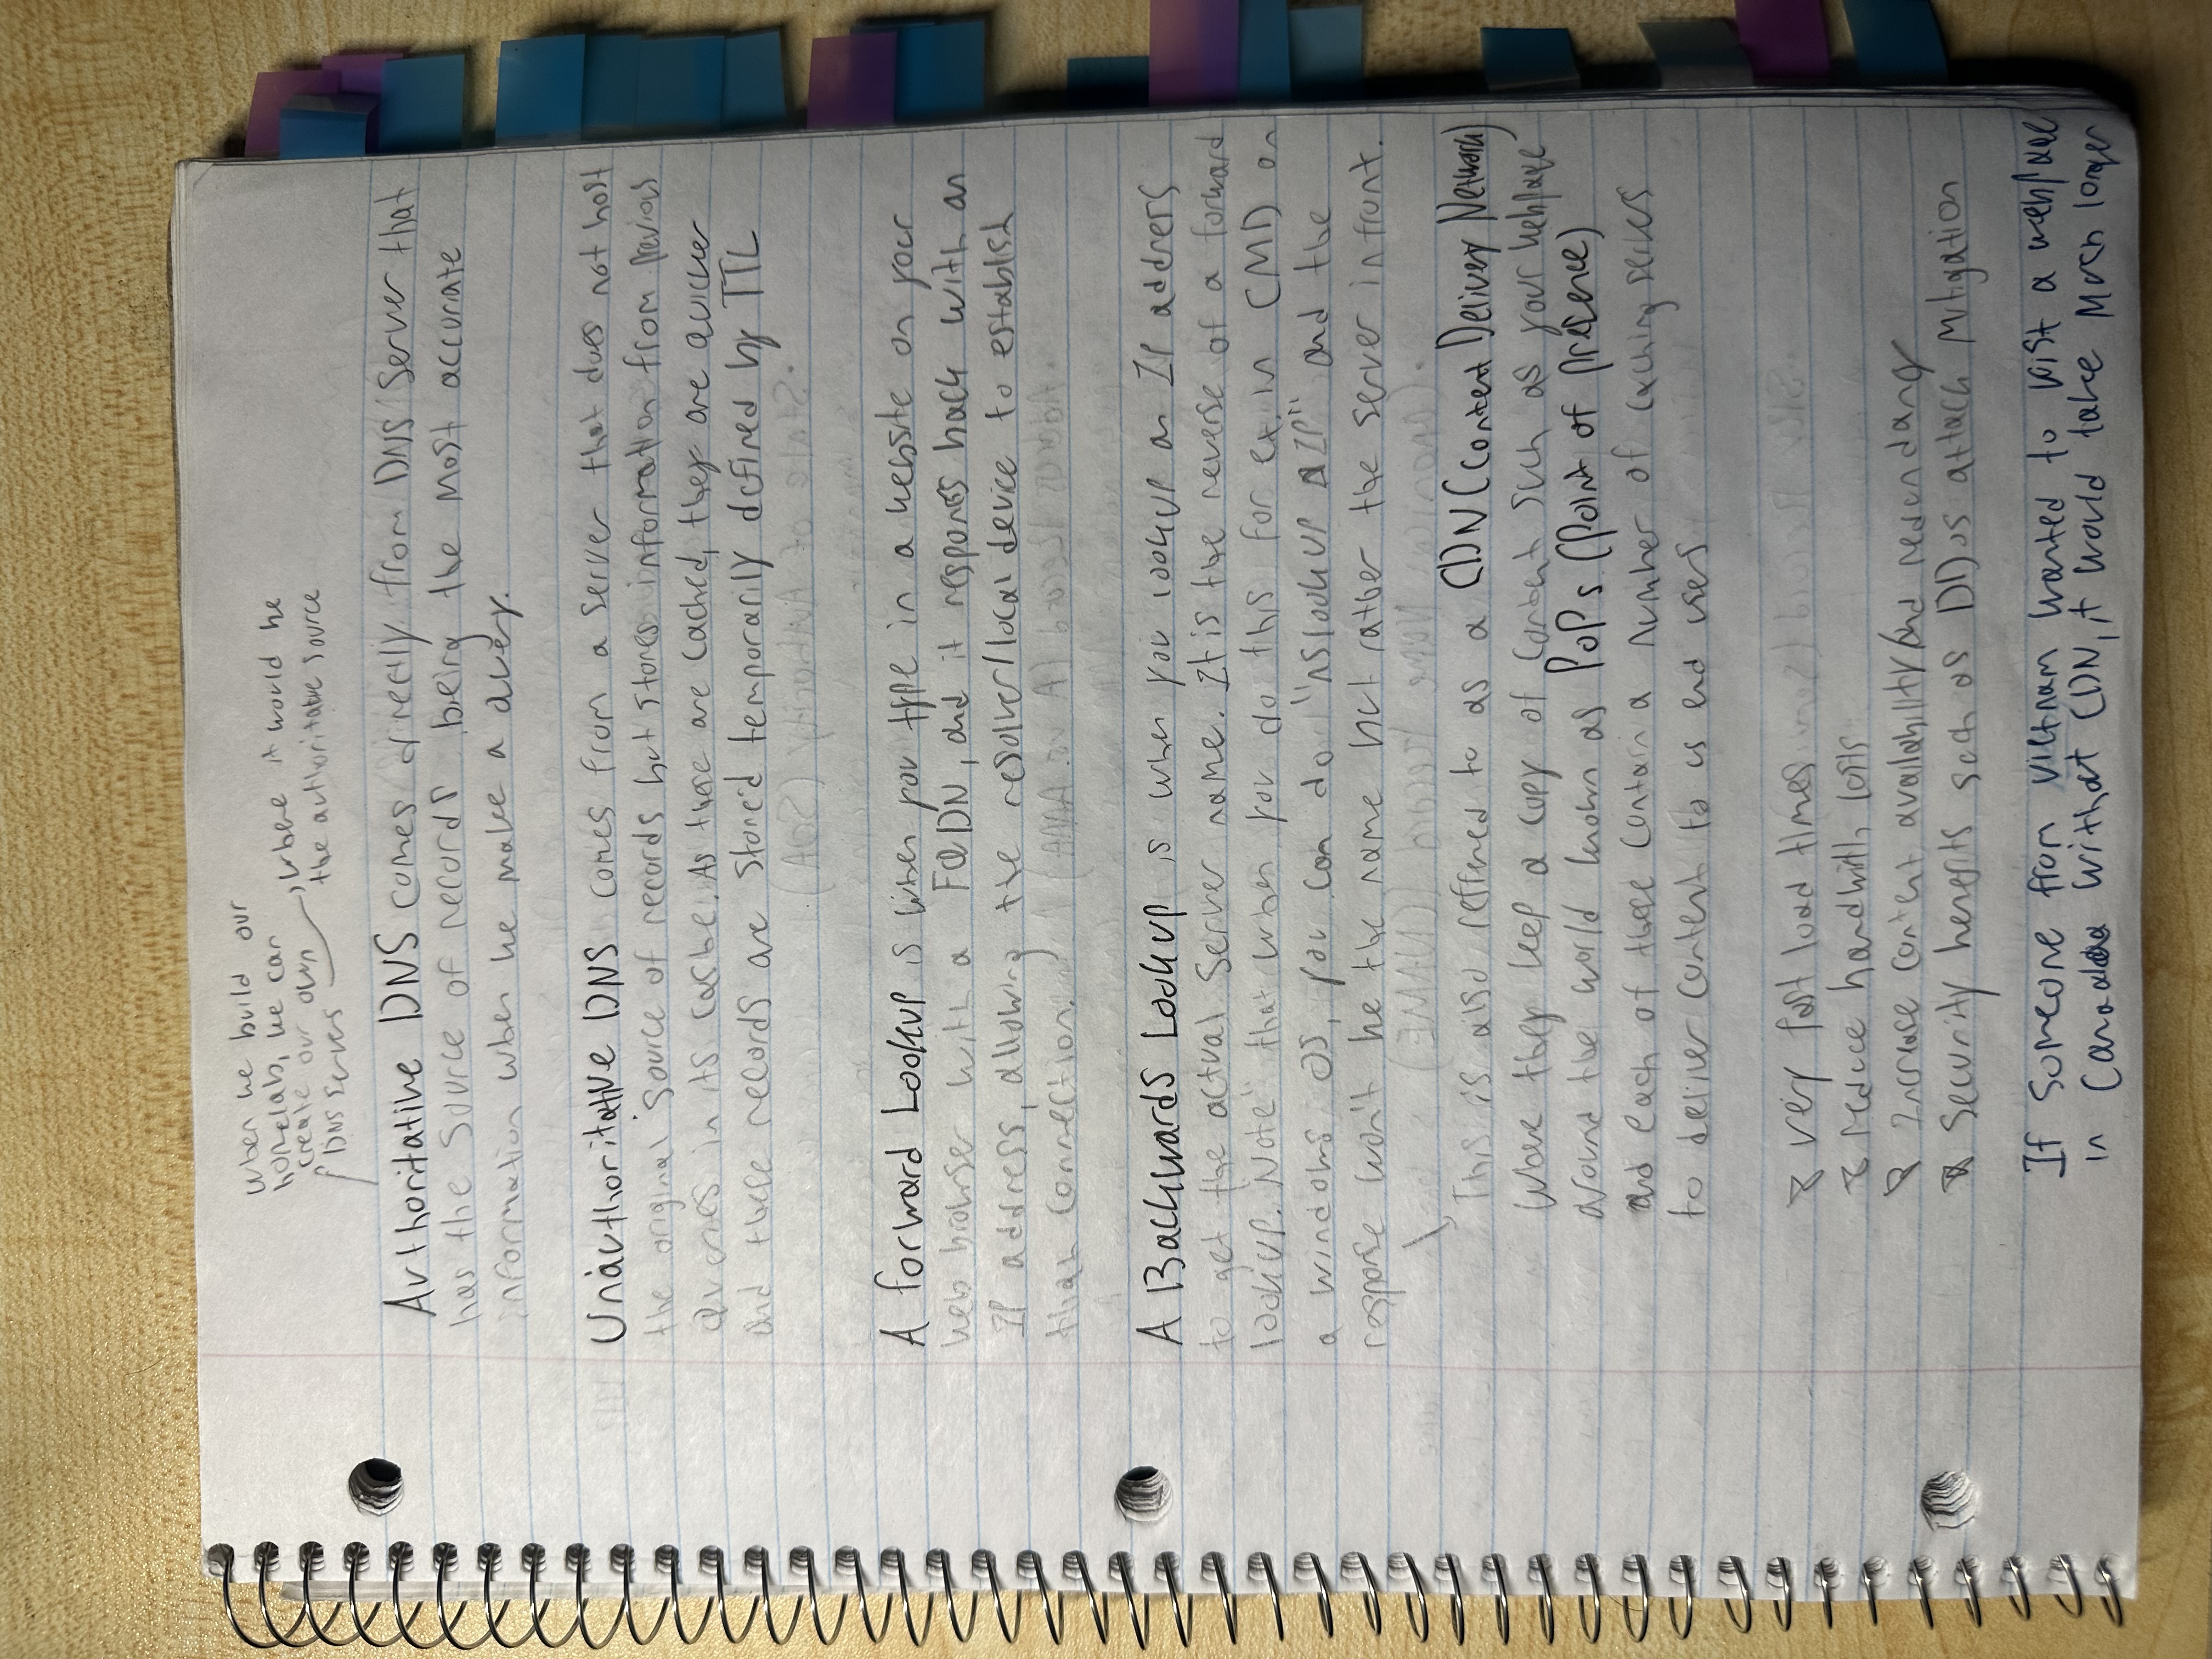 when we build our
homelab, we can
create our own
DNS servers
, where it would be
the authoritative source
Authoritative DNS comes directly from DNS server that
has the source of records being the most accurate
information when we make a query.
Unauthoritative DNS comes from a server that does not host
the original source of records but stores information from previous
queries in its cache. As these are cached, they are quicker
and these records are stored temporarily defined by TTL
A forward Lookup is when you type in a website on your
web browser with a FQDN, and it respones back with an
IP address, allowing the resolver/local device to establish
that connection.
A Backwards Lookup is when you lookup an IP address
to get the actual server name. It is the reverse of a forward
lookup. Note" that when you do this for ex. in CMD on
a windows OS, you can do "nslookup IP" and the
response won't be the name but rather the server infront.
This is also reffered to as a CDN (Content Delivery Network)
where they keep a copy of content such as your webpage
around the world known as PoPs (Point of Presence)
and each of these contain a number of caching servers
to deliver content to us end users
very fast load times
reduce bandwith costs
Increase content availability and redundancy
Security benefits such as DDos attack mitigation
If someone from Vietnam wanted to visit a webpage
in Canada without CDN, it would take much longer